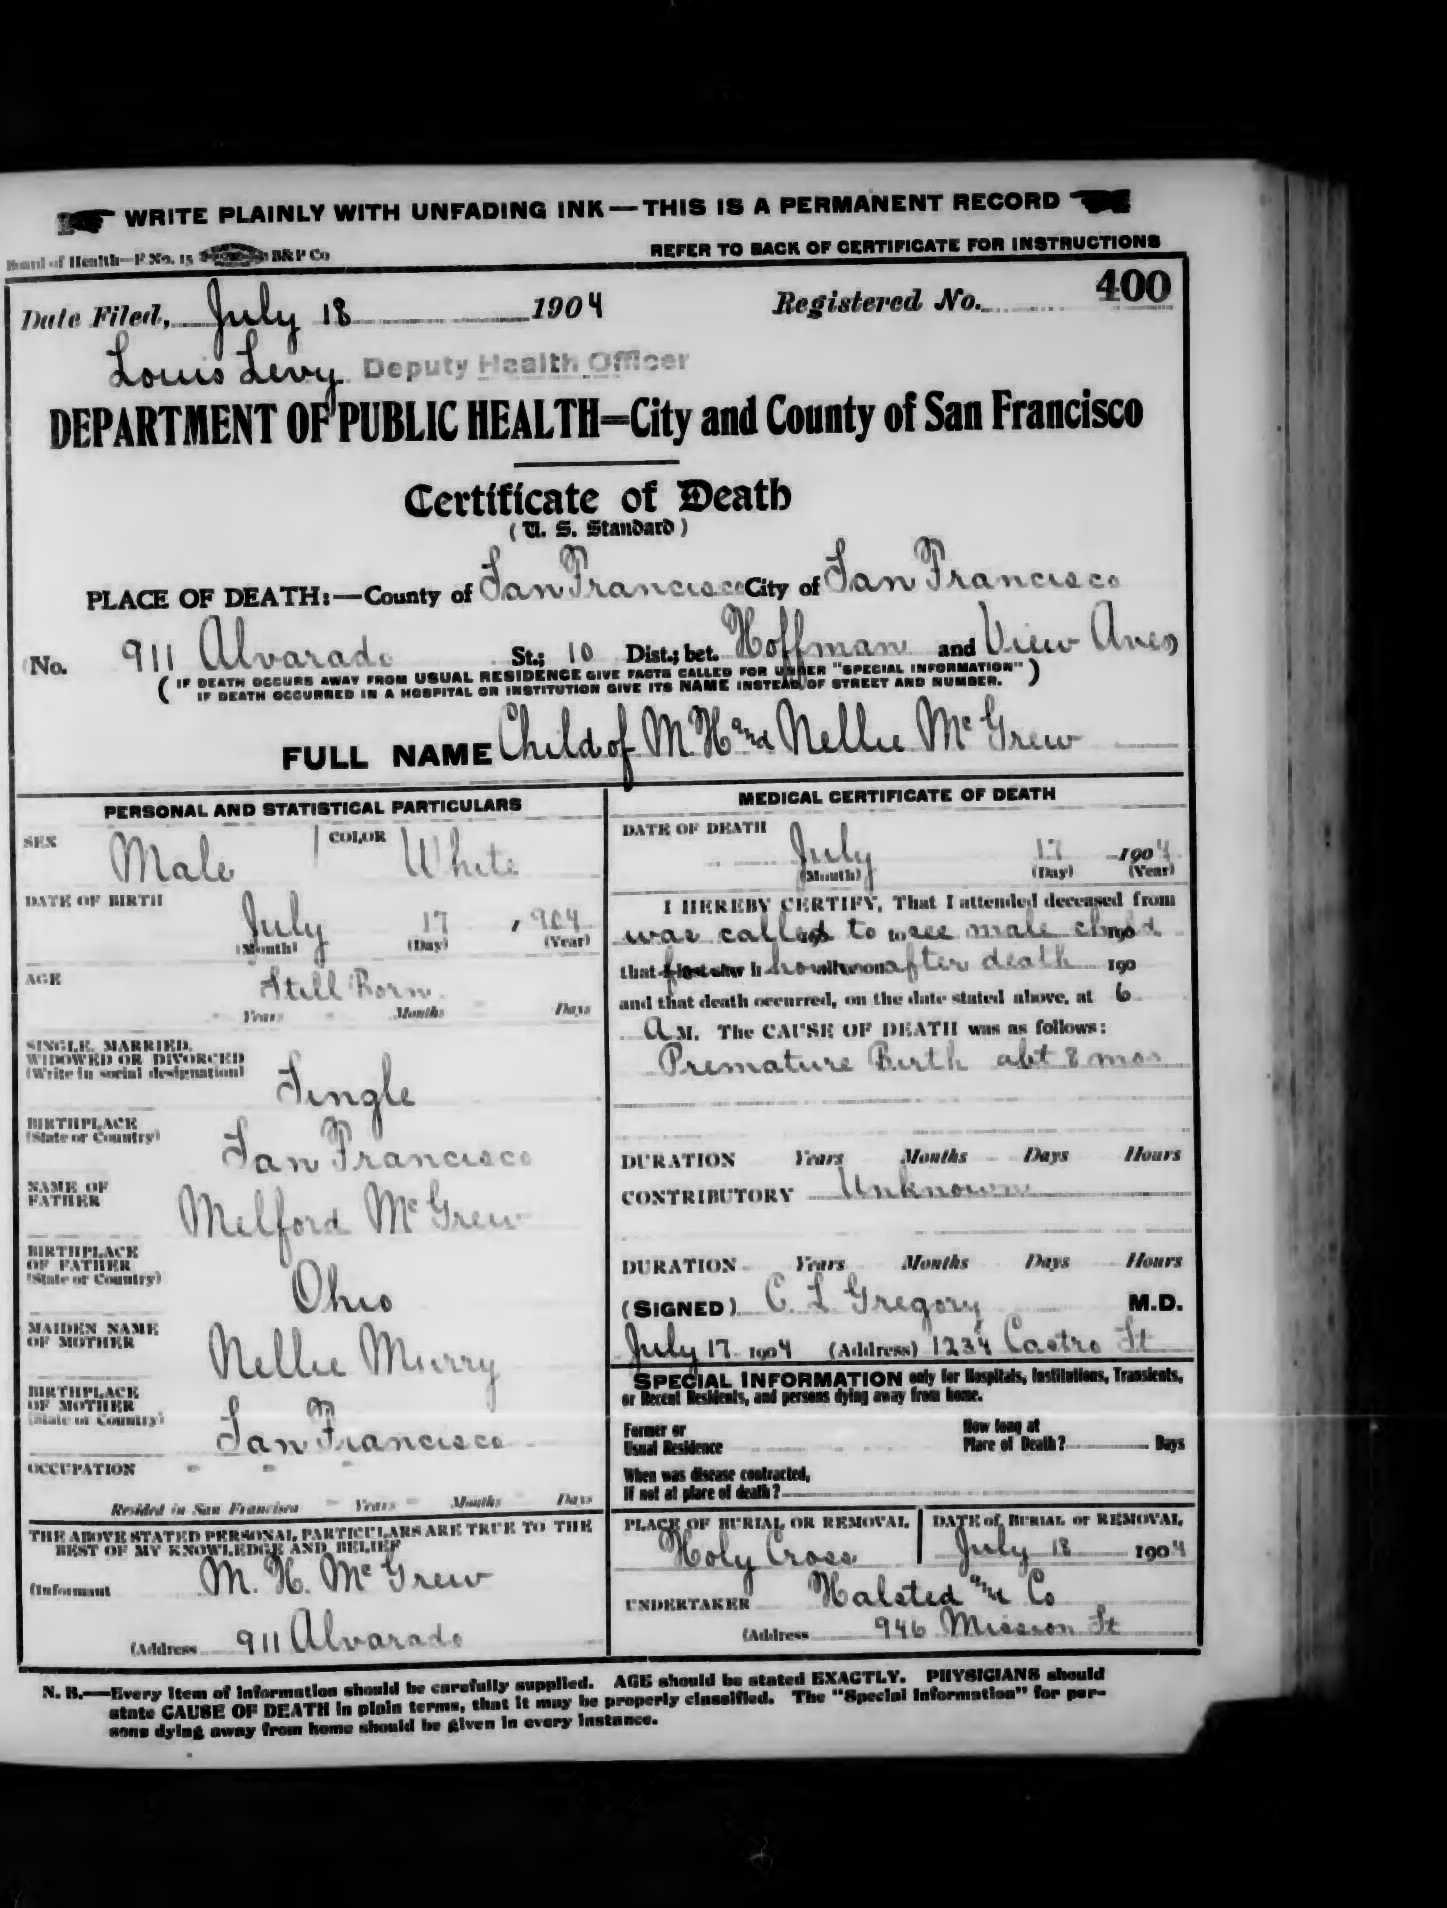 WRITE PLAINLY WITH UNFADING INK—THIS IS A PERMANENT RECORD
Board of Health—F. No. 15 B&P Co
REFER TO BACK OF CERTIFICATE FOR INSTRUCTIONS
Date Filed, July 18 1904 Registered No. 400
Louis Levy Deputy Health Officer
DEPARTMENT OF PUBLIC HEALTH—City and County of San Francisco
Certificate of Death
(U. S. Standard)
PLACE OF DEATH:—County of San Francisco City of San Francisco
(No. 911 Alvarado St.; 10 Dist.; bet. Hoffman and View Aves)
(IF DEATH OCCURS AWAY FROM USUAL RESIDENCE GIVE FACTS CALLED FOR UNDER "SPECIAL INFORMATION"
IF DEATH OCCURRED IN A HOSPITAL OR INSTITUTION GIVE ITS NAME INSTEAD OF STREET AND NUMBER.)
FULL NAME Child of M. H and Nellie McGrew
PERSONAL AND STATISTICAL PARTICULARS
SEX Male COLOR White
DATE OF BIRTH July 17, 1904
(Month) (Day) (Year)
AGE Still Born
Years Months Days
SINGLE, MARRIED,
WIDOWED OR DIVORCED
(Write in social designation) Single
BIRTHPLACE
(State or Country) San Francisco
NAME OF
FATHER Melford McGrew
BIRTHPLACE
OF FATHER
(State or Country) Ohio
MAIDEN NAME
OF MOTHER Nellie Murry
BIRTHPLACE
OF MOTHER
(State or Country) San Francisco
OCCUPATION
Resided in San Francisco Years Months Days
THE ABOVE STATED PERSONAL PARTICULARS ARE TRUE TO THE
BEST OF MY KNOWLEDGE AND BELIEF
(Informant M. H. McGrew
(Address 911 Alvarado
MEDICAL CERTIFICATE OF DEATH
DATE OF DEATH
July 17 1904
(Month) (Day) (Year)
I HEREBY CERTIFY, That I attended deceased from
was called to see male child
that h after death 190
and that death occurred, on the date stated above, at 6
A M. The CAUSE OF DEATH was as follows:
Premature Birth abt 8 mos
DURATION Years Months Days Hours
CONTRIBUTORY Unknown
DURATION Years Months Days Hours
(SIGNED) C. L Gregory M.D.
July 17 1904 (Address) 1234 Castro St
SPECIAL INFORMATION only for Hospitals, Institutions, Transients,
or Recent Residents, and persons dying away from home.
Former or
Usual Residence
How long at
Place of Death? Days
When was disease contracted,
If not at place of death?
PLACE OF BURIAL OR REMOVAL
Holy Cross
DATE of BURIAL or REMOVAL
July 18 1904
UNDERTAKER Halsted and Co
(Address 946 Mission St
N. B.—Every item of information should be carefully supplied. AGE should be stated EXACTLY. PHYSICIANS should
state CAUSE OF DEATH in plain terms, that it may be properly classified. The "Special Information" for per-
sons dying away from home should be given in every instance.